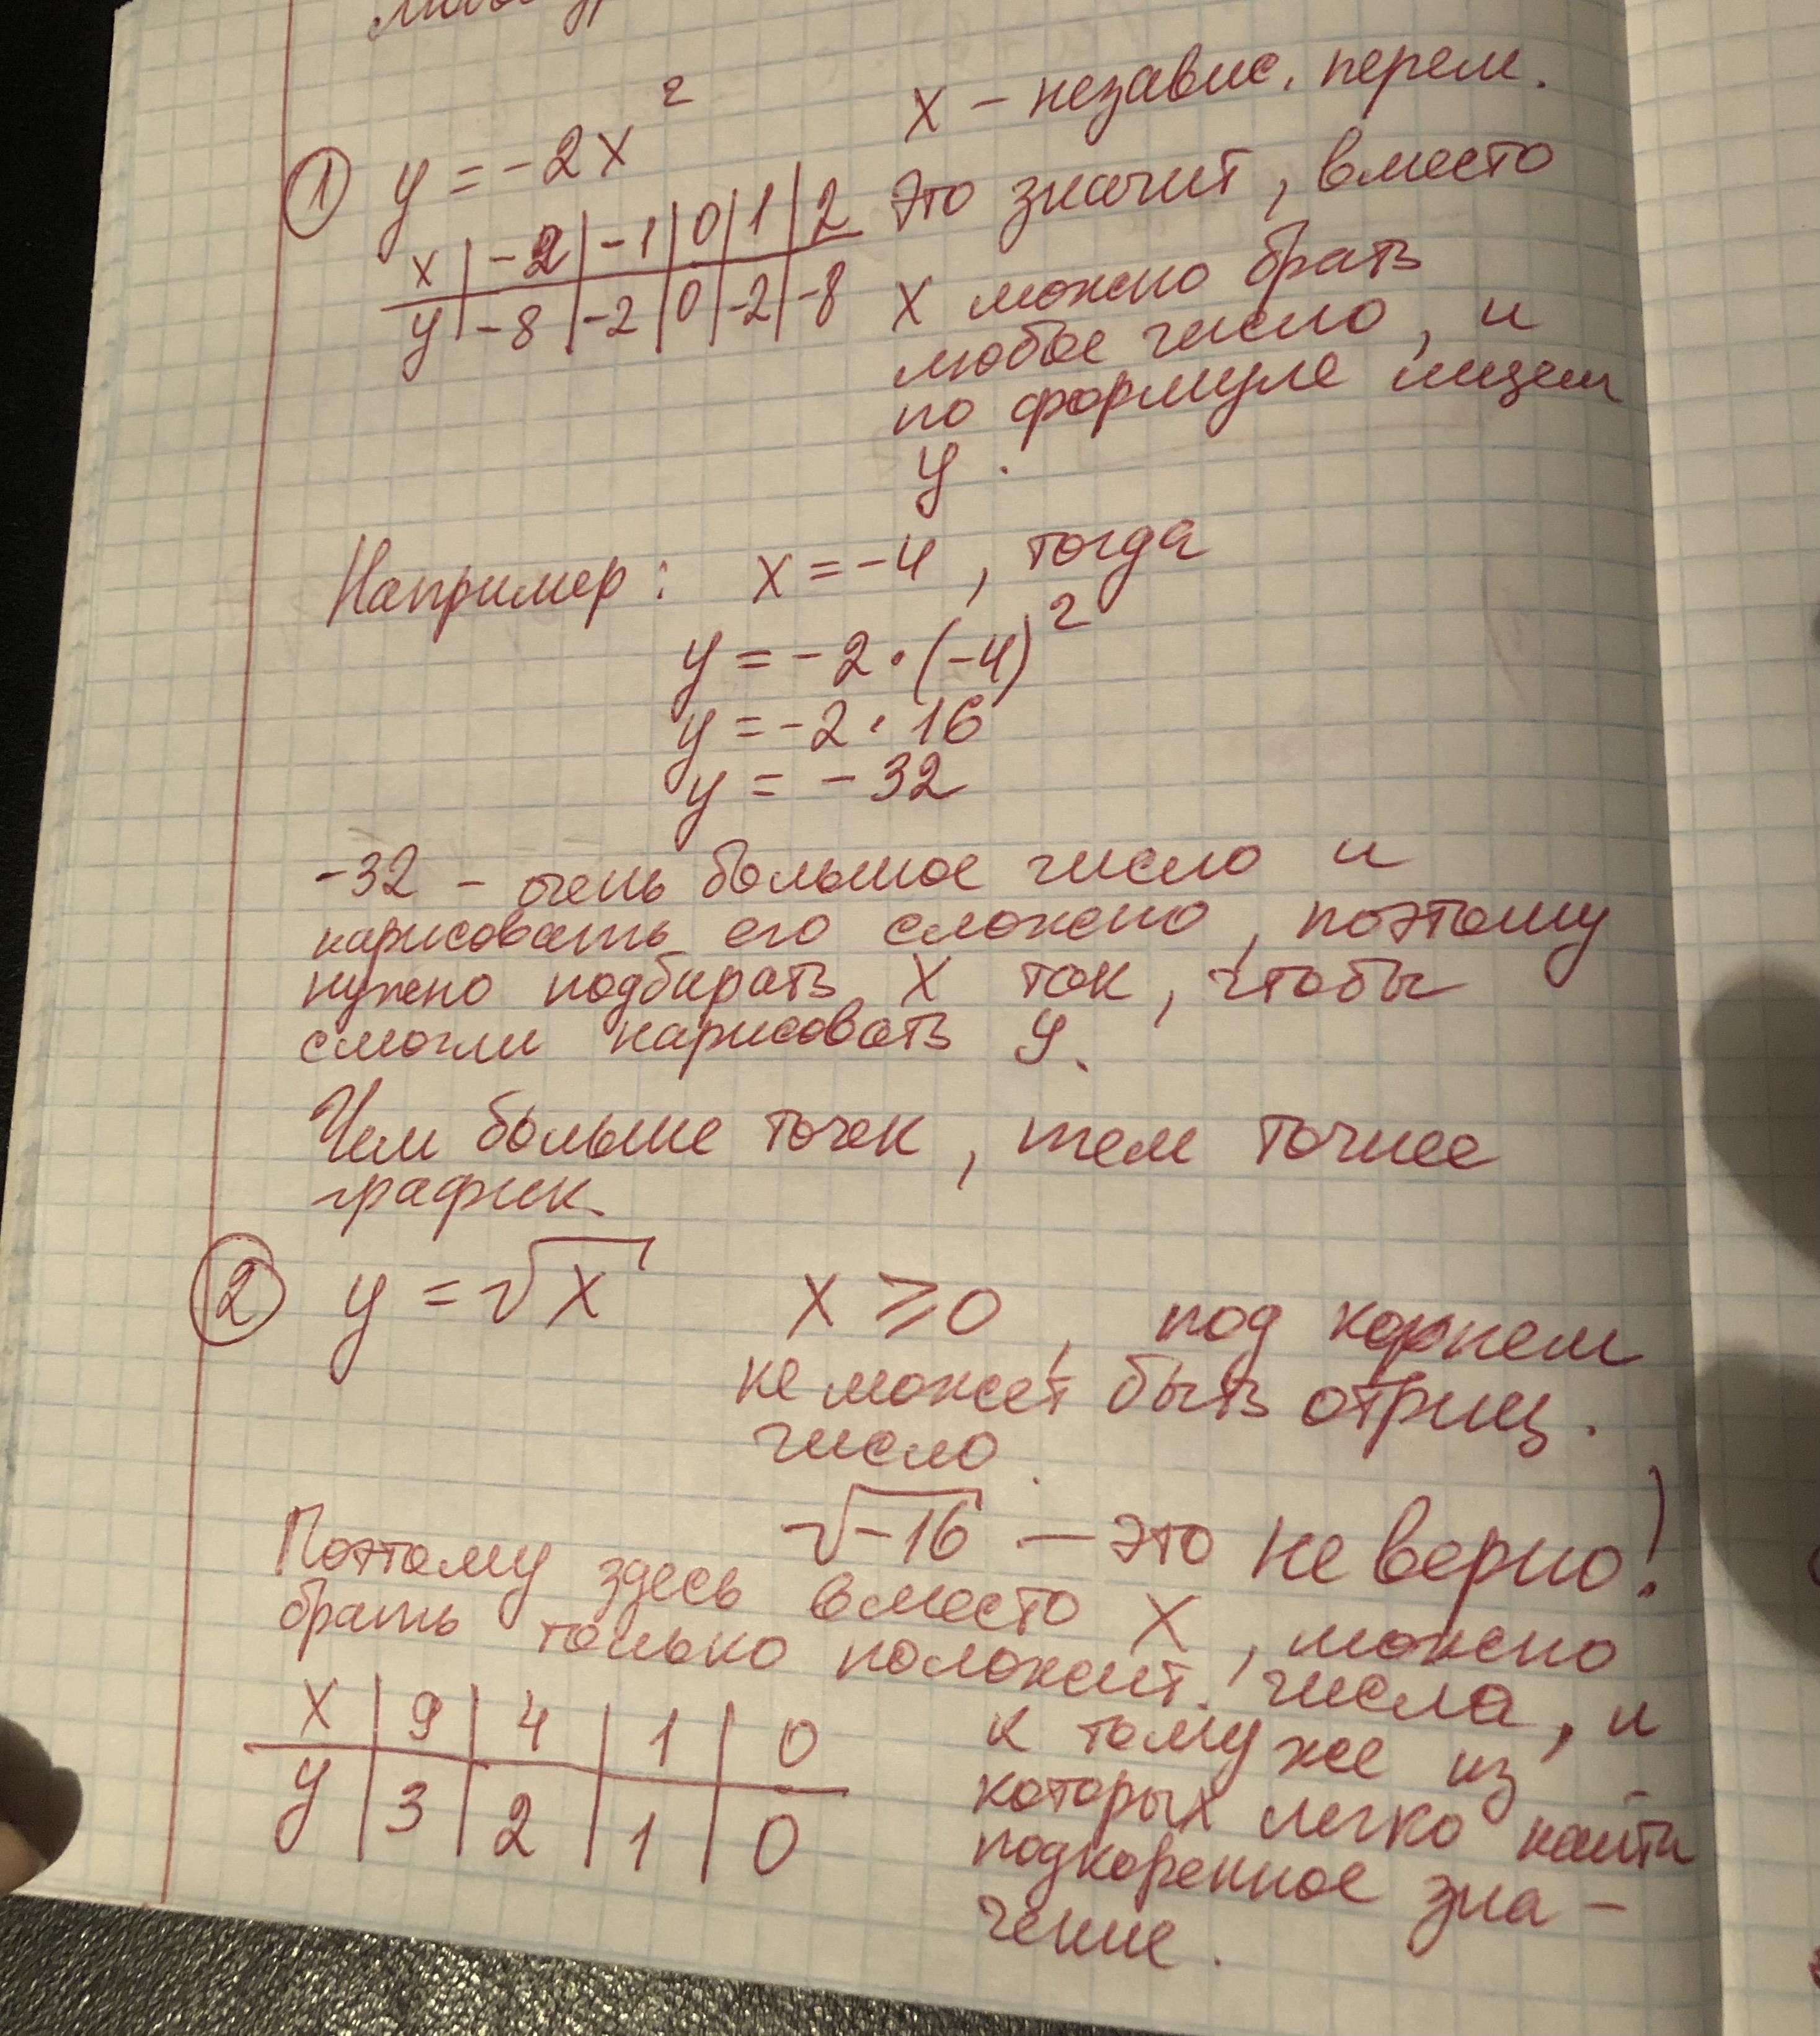 ① y = -2x²
x - независ. перем.
Это значит, вместо
x | -2 | -1 | 0 | 1 | 2
y | -8 | -2 | 0 | -2 | -8
x можно брать
любое число, и
по формуле ищем
y.
Например: x = -4, тогда
y = -2 · (-4)²
y = -2 · 16
y = -32
-32 - очень большое число и
нарисовать его сложно, поэтому
нужно подбирать x так, чтобы
смогли нарисовать y.
Чем больше точек, тем точнее
график.
② y = √x x ⩾ 0, под корнем
не может быть отриц.
число.
√-16 — это не верно!
Поэтому здесь вместо x, можно
брать только положит. числа, и
к тому же из
которых легко найти
подкоренное зна-
чение.
x | 9 | 4 | 1 | 0
y | 3 | 2 | 1 | 0